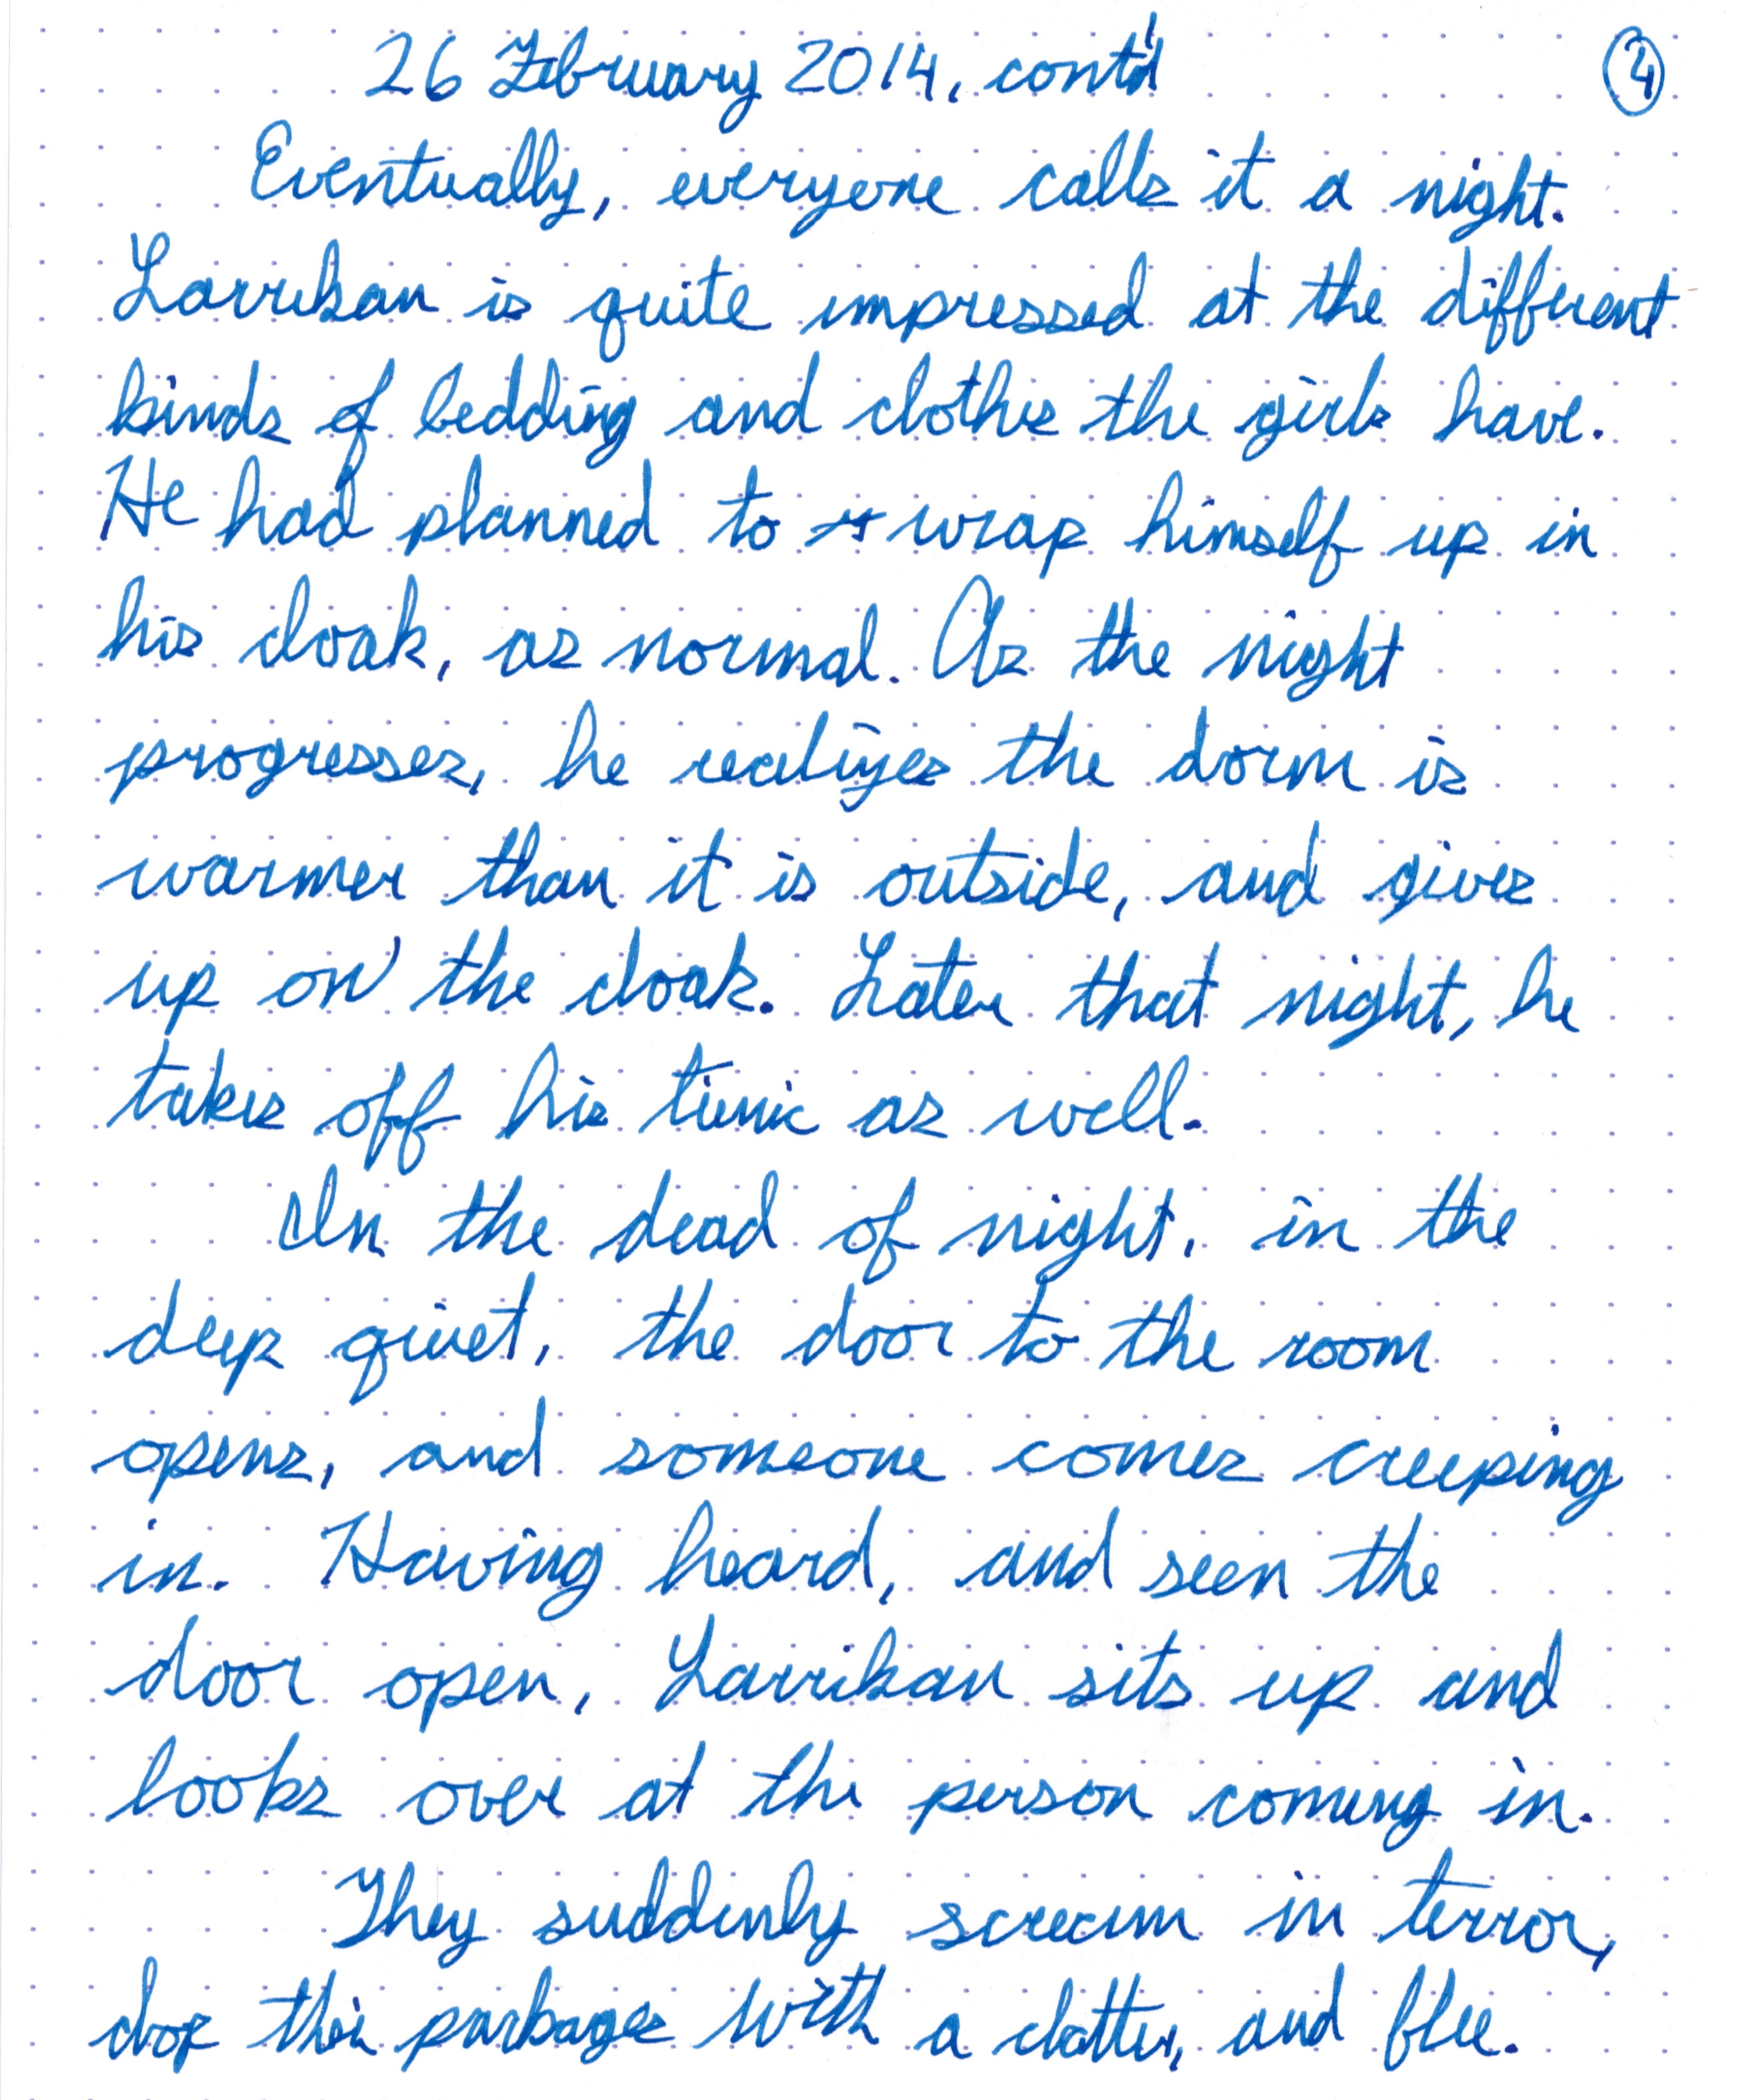 26 February 2014, cont'd
4
Eventually, everyone calls it a night.
Larrikan is quite impressed at the different
kinds of bedding and clothes the girls have.
He had planned to wrap himself up in
his cloak, as normal. As the night
progresses, he realizes the dorm is
warmer than it is outside, and gives
up on the cloak. Later that night, he
takes off his tunic as well.
In the dead of night, in the
deep quiet, the door to the room
opens, and someone comes creeping
in. Having heard, and seen the
door open, Larrikan sits up and
looks over at the person coming in.
They suddenly scream in terror,
drop their packages with a clatter, and flee.